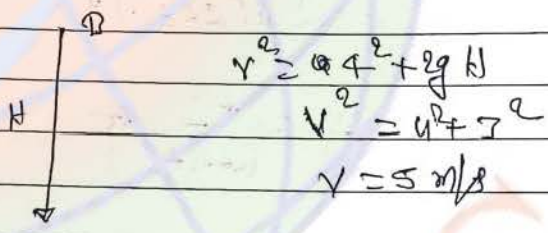 B
v² = 4² + 2g H
H
v² = 4² + 3²
v = 5 m/s